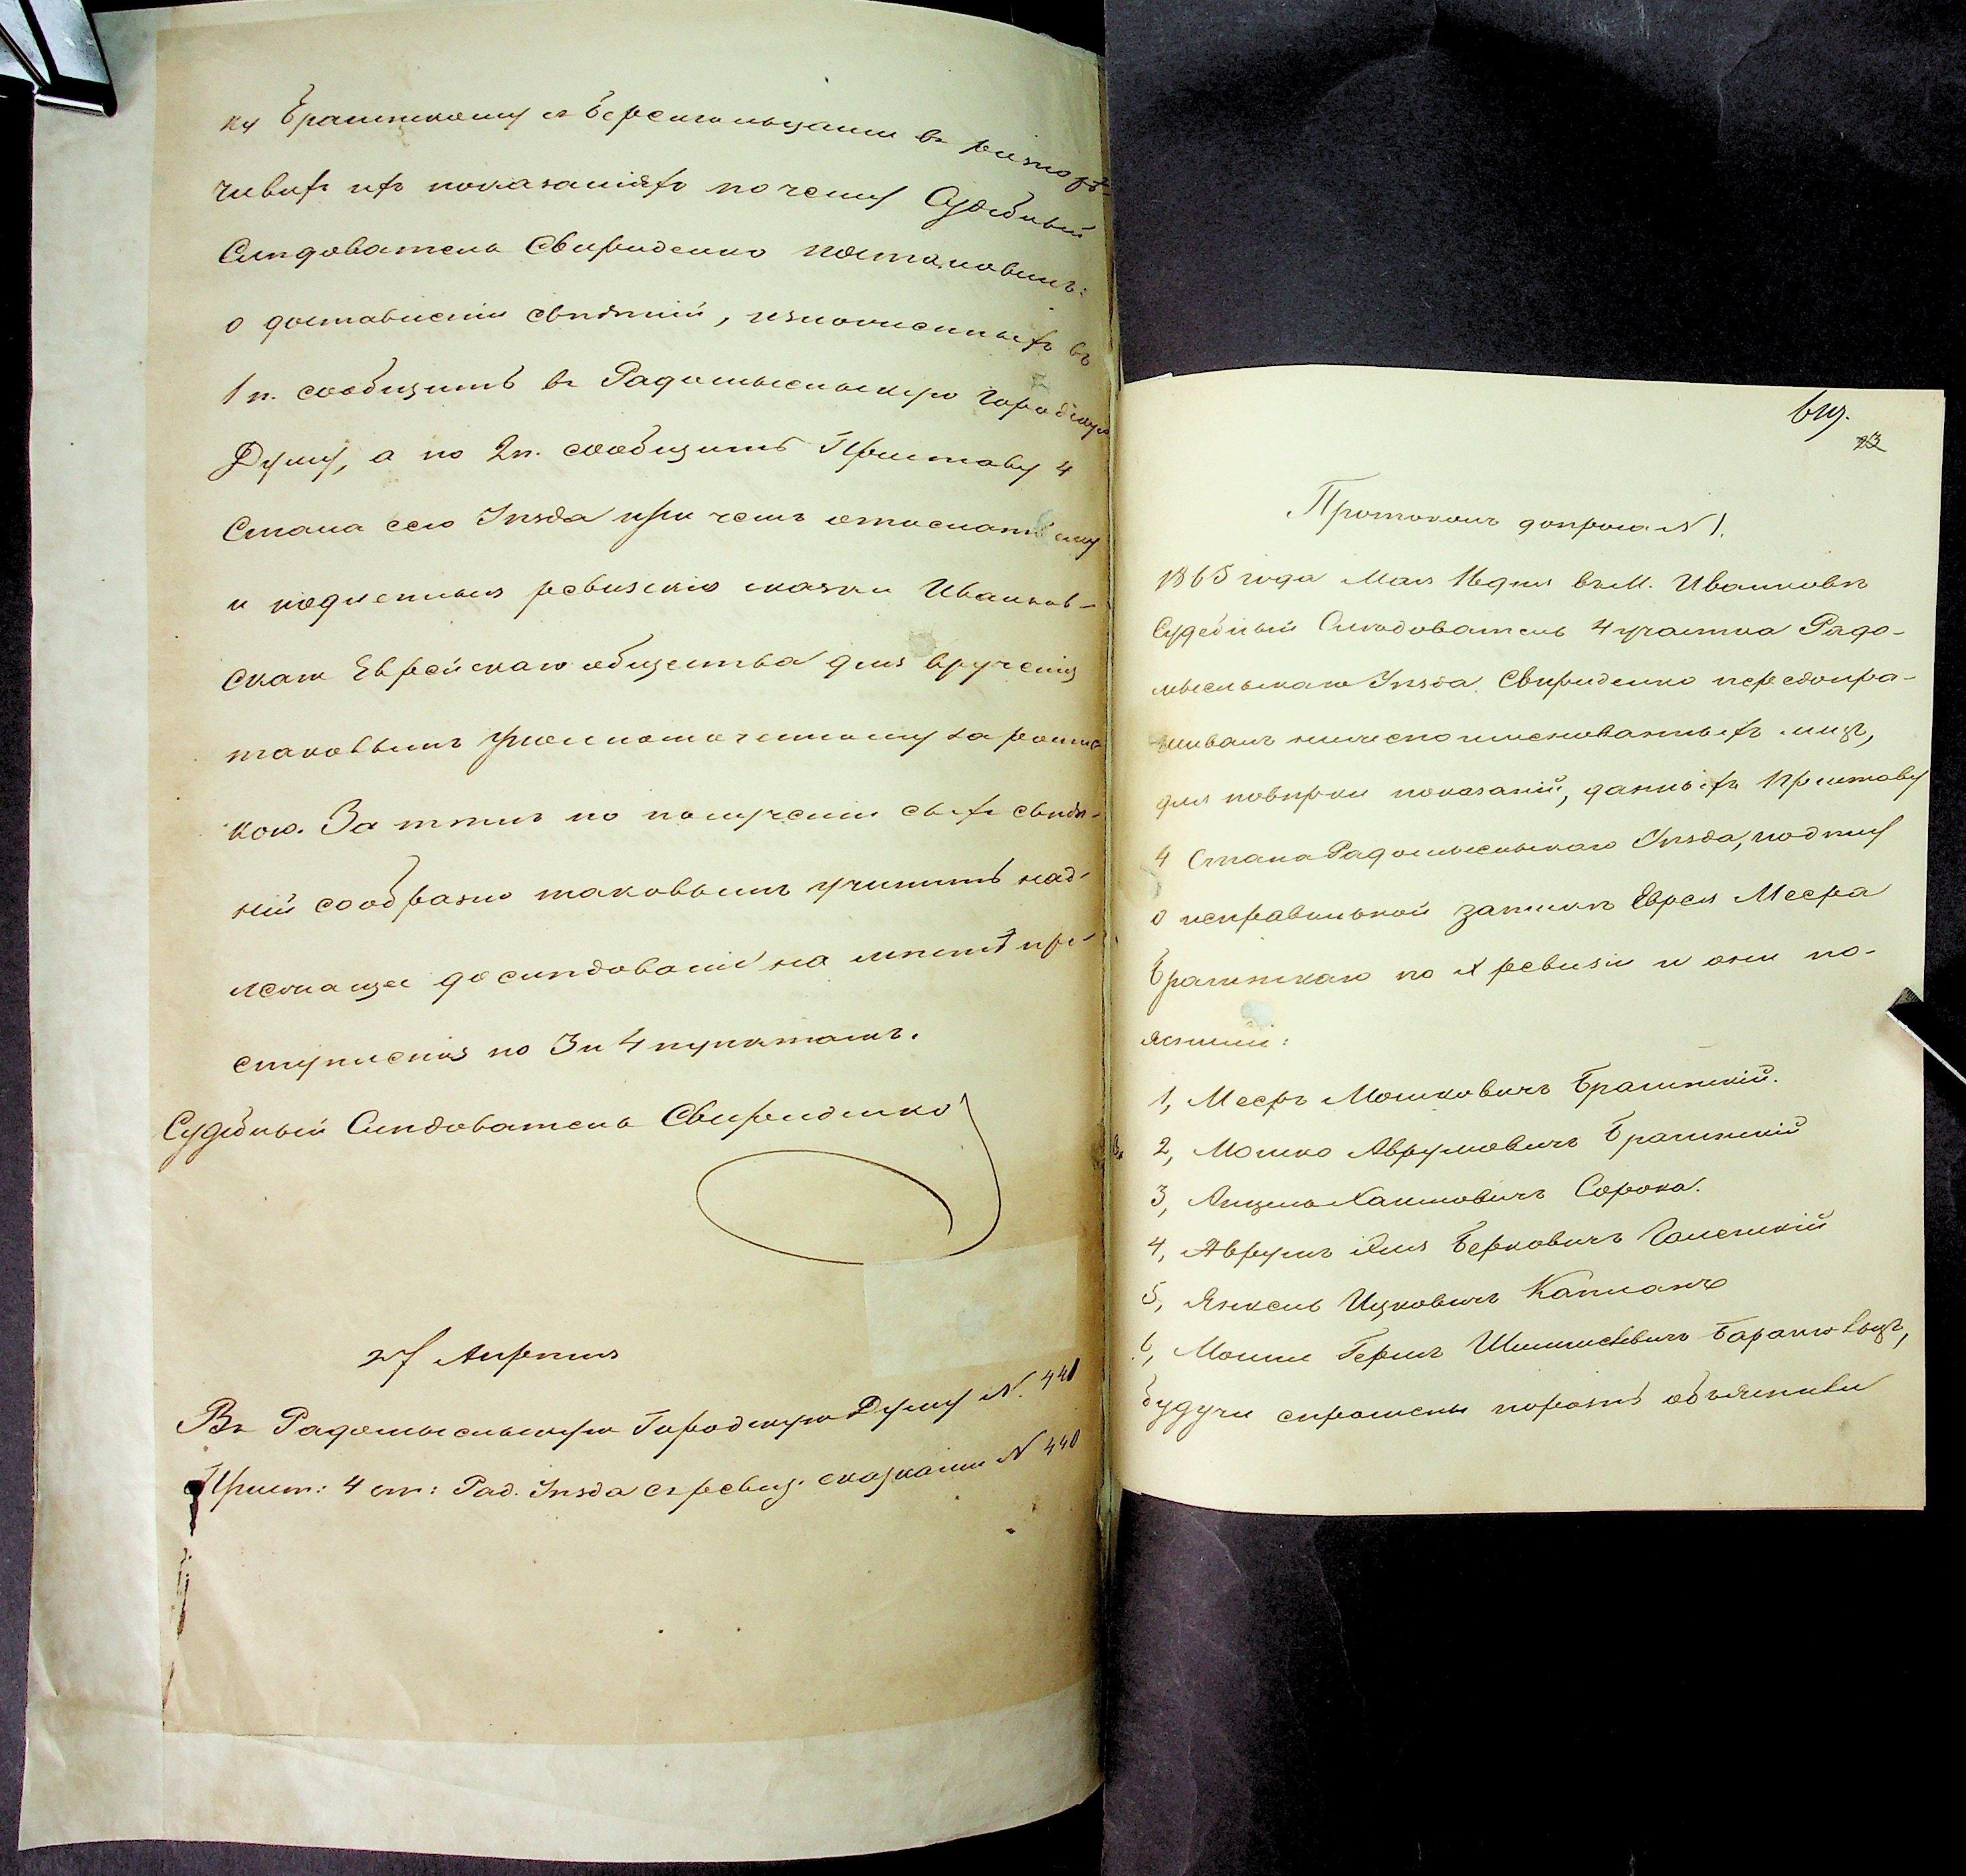 ку Брагинскому съ Беренгольцами въ разнорѣ-
чивыхъ ихъ показаніяхъ почему Судебный
Слѣдователь Свириденко постановилъ:
о доставленіи свѣдѣній, изложенныхъ въ
1 п. сообщить въ Радомысльскую Городскую
Думу, а по 2 п. сообщить Приставу 4
Стана сего Уѣзда при чемъ отослать ему
и подлетныя ревизскіе сказки Иванков-
скаго Еврейскаго общества для врученія
таковымъ уполномоченному за роспис-
кою. За тѣмъ по полученіи сихъ свѣдѣ-
ній сообразно таковымъ учинить над-
лежащее дослѣдованіе на мѣстѣ пре-
ступленія по 3 и 4 пунктамъ.
Судебный Слѣдователь Свириденко
27 Апрѣля
Въ Радомысльскую Городскую Думу N. 441
Прист: 4 ст: Рад. Уѣзда съ ревиз. сказками N 440
23
Протоколъ допроса N 1.
1865 года Мая 16 дня въ М. Иванковѣ
Судебный Слѣдователь 4 участка Радо-
мысльскаго Уѣзда Свириденко передопра-
шивалъ нижепоименованныхъ лицъ,
для повѣрки показаній, данныхъ Приставу
4 Стана Радомысльскаго Уѣзда, по дѣлу
о неправильной запискѣ Еврея Меера
Брагинскаго по X ревизіи и они по-
яснили:
1, Мееръ Мошковичъ Брагинскій.
2, Мошко Аврумовичъ Брагинскій
3, Анцель Хаимовичъ Сорока.
4, Аврумъ Эля Берковичъ Галенскій
5, Янкель Ицковичъ Капланъ
6, Мошко Гершъ Шлиомовичъ,
будучи спрошены порознь объяснили